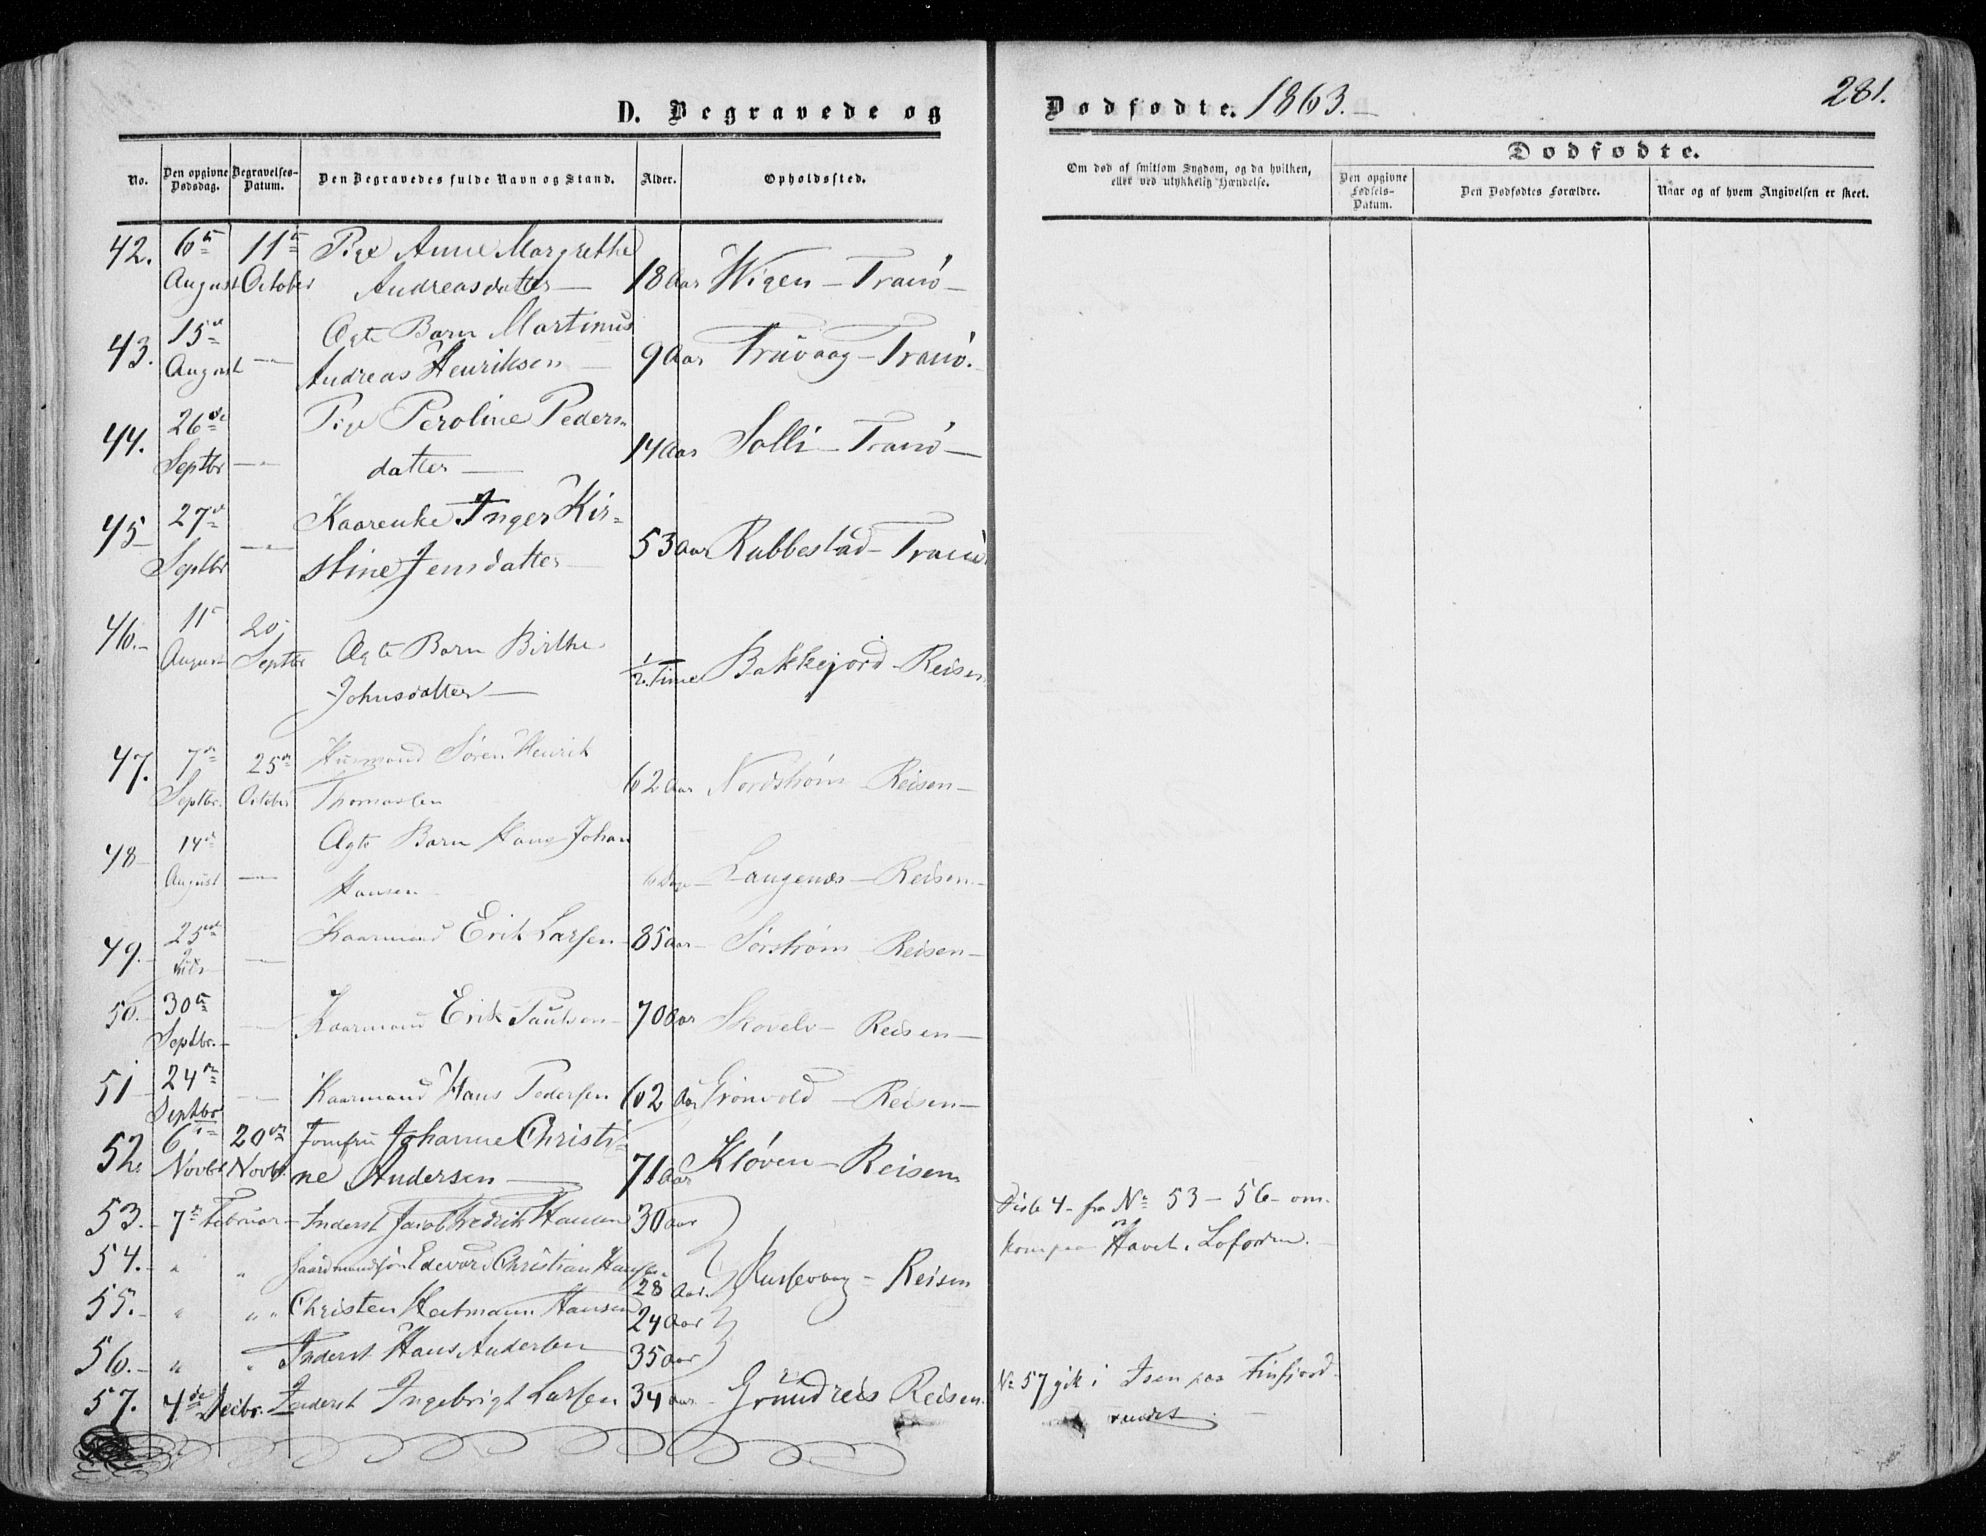 D. Begravede og
Dødfødte. 1863.
281.
No.
Den opgivne Dødsdag.
Begravelses-Datum.
Den Begravedes fulde Navn og Stand.
Alder.
Opholdssted.
Om død af smitsom Sygdom, og da hvilken, eller ved ulykkelig Hændelse.
Dødfødte.
Den opgivne Fødsels-Datum.
Den Dødfødtes Forældre.
Naar og af hvem Angivelsen er skeet.
42. 6te 11te Pige Anne Margrethe
August October Andreasdatter — 18 Aar Wigen — Tranø —
43. 15de Ægte Barn Martinus
August — Andreas Henriksen — 9 Aar Trævaag — Tranø.
44. 26de Pige Peroline Peders-
Septbr — datter — 14 Aar Solli — Tranø —
45 27de Kaarenke Inger Kir-
Septbr — stine Jensdatter 53 Aar Rubbestad — Tranø
46. 11te 20de Ægte Barn Birthe
August Septbr Johnsdatter — 1/2 Time Bakkejord — Reisen
47. 7de 25de Husmand Søren Henrik
Septbr. October Thomassen 62 Aar Nordstrøm — Reisen —
48 14de Ægte Barn Hans Johan
August — Hansen 6 Dage — Laugenes — Reisen —
49. 25de — Kaarmand Erik Larsen — 85 Aar — Sørstrøm — Reisen —
50. 30te
Septbr. — Kaarmand Erik Paulsen — 70 Aar Skovelv — Reisen —
51 24de
Septbr — Kaarmand Hans Pedersen 62 Aar Grønvold — Reisen —
52. 6te 20de Jomfru Johanne Christi-
Novbr Novbr. ne Andersen — 71 Aar Kløven — Reisen
53. 7de Februar — Inderst Jacob Fredrik Hansen 30 Aar
Disse 4 — fra No 53 — 56 — om-
54. " " Gaardmandssøn Edevard Christian Hansen 28 Aar. Russevaag — Reisen
kom paa Havet i Lofoden. —
55. " " " Christen Heitmann Hansen 24 Aar
56. " " Inderst Hans Andersen 35 Aar
57. 4de Decbr. Inderst Ingebrigt Larsen 34 Aar — Grundreis Reisen.
No 57 gik i Isen paa Finfjord-
vandet. —